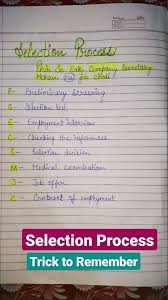 Selection Process
Pesh So Eski Company Secretary
Mohani job chodi
P- Preliminary Screening
S- Selection test
E- Employment interview
C- Checking the references
S- Selection decision
M- Medical examination
J- Job offer
C- Contract of employment
Selection Process
Trick to Remember